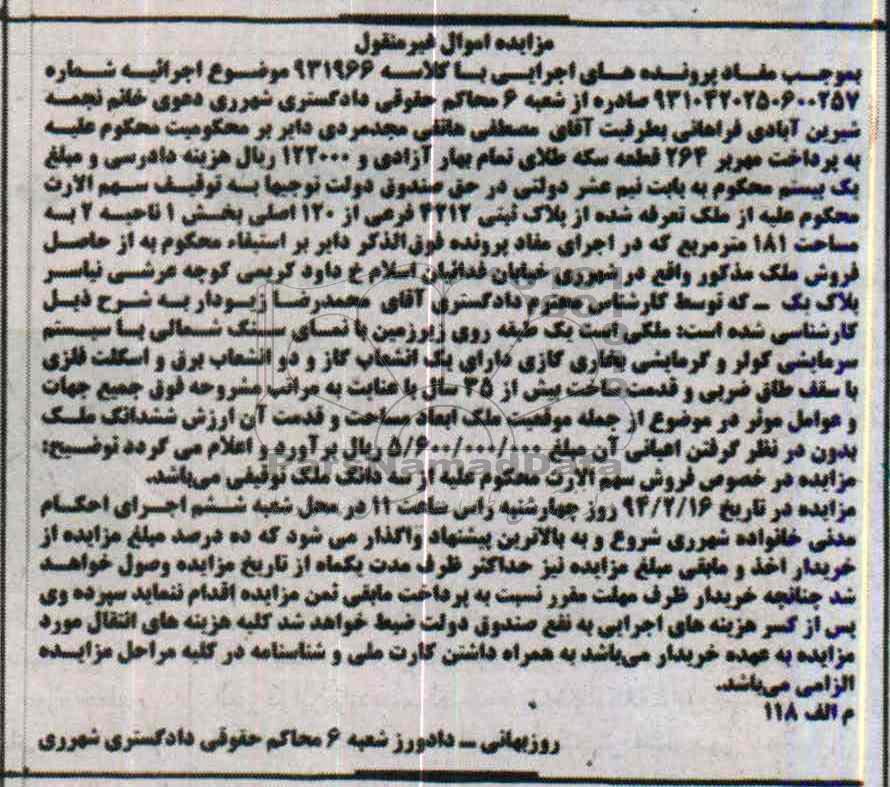 مزایده اموال غیرمنقول
بموجب مفاد پرونده های اجرایی با کلاسه ۹۳۱۹۶۶ موضوع اجرائیه شماره
۹۳۱۰۴۲۰۲۵۰۶۰۰۲۵۷ صادره از شعبه ۶ محاکم حقوقی دادگستری شهرری دعوی خانم نجمه
شیرین آبادی فراهانی بطرفیت آقای مصطفی هاتفی مجدمردی دایر بر محکومیت محکوم علیه
به پرداخت مهریر ۲۶۴ قطعه سکه طلای تمام بهار آزادی و ۱۲۲۰۰۰ ریال هزینه دادرسی و مبلغ
یک بیستم محکوم به بابت نیم عشر دولتی در حق صندوق دولت توجیها به توقیف سهم الارث
محکوم علیه از ملک تعرفه شده از پلاک ثبتی ۴۲۱۲ فرعی از ۱۲۰ اصلی بخش ۱ ناحیه ۲ به
مساحت ۱۸۱ مترمربع که در اجرای مفاد پرونده فوق‌الذکر دایر بر استیفاء محکوم به از حاصل
فروش ملک مذکور واقع در شهرری خیابان فدائیان اسلام خ داود کریمی کوچه عرشی نیاسر
پلاک یک ــ که توسط کارشناس محترم دادگستری آقای محمدرضا زیودار به شرح ذیل
کارشناسی شده است: ملکی است یک طبقه روی زیرزمین با نمای سنگ شمالی با سیستم
سرمایشی کولر و گرمایشی بخاری گازی دارای یک انشعاب گاز و دو انشعاب برق و اسکلت فلزی
با سقف طاق ضربی و قدمت ساخت بیش از ۳۵ سال با عنایت به مراتب مشروحه فوق جمیع جهات
و عوامل موثر در موضوع از جمله موقعیت ملک ابعاد مساحت و قدمت آن ارزش ششدانگ ملک
بدون در نظر گرفتن اعیانی آن مبلغ ۵/۶۰۰/۰۰۰/۰۰۰ ریال برآورد و اعلام می گردد توضیح:
مزایده در خصوص فروش سهم الارث محکوم علیه از سه دانگ ملک توقیفی می‌باشد.
مزایده در تاریخ ۹۴/۲/۱۶ روز چهارشنبه راس ساعت ۱۱ در محل شعبه ششم اجرای احکام
مدنی خانواده شهرری شروع و به بالاترین پیشنهاد واگذار می شود که ده درصد مبلغ مزایده از
خریدار اخذ و مابقی مبلغ مزایده نیز حداکثر ظرف مدت یکماه از تاریخ مزایده وصول خواهد
شد چنانچه خریدار ظرف مهلت مقرر نسبت به پرداخت مابقی ثمن مزایده اقدام ننماید سپرده وی
پس از کسر هزینه های اجرایی به نفع صندوق دولت ضبط خواهد شد کلیه هزینه های انتقال مورد
مزایده به عهده خریدار می‌باشد به همراه داشتن کارت ملی و شناسنامه در کلیه مراحل مزایده
الزامی می‌باشد.
م الف ۱۱۸
روزبهانی ــ دادورز شعبه ۶ محاکم حقوقی دادگستری شهرری
ParsNamadData